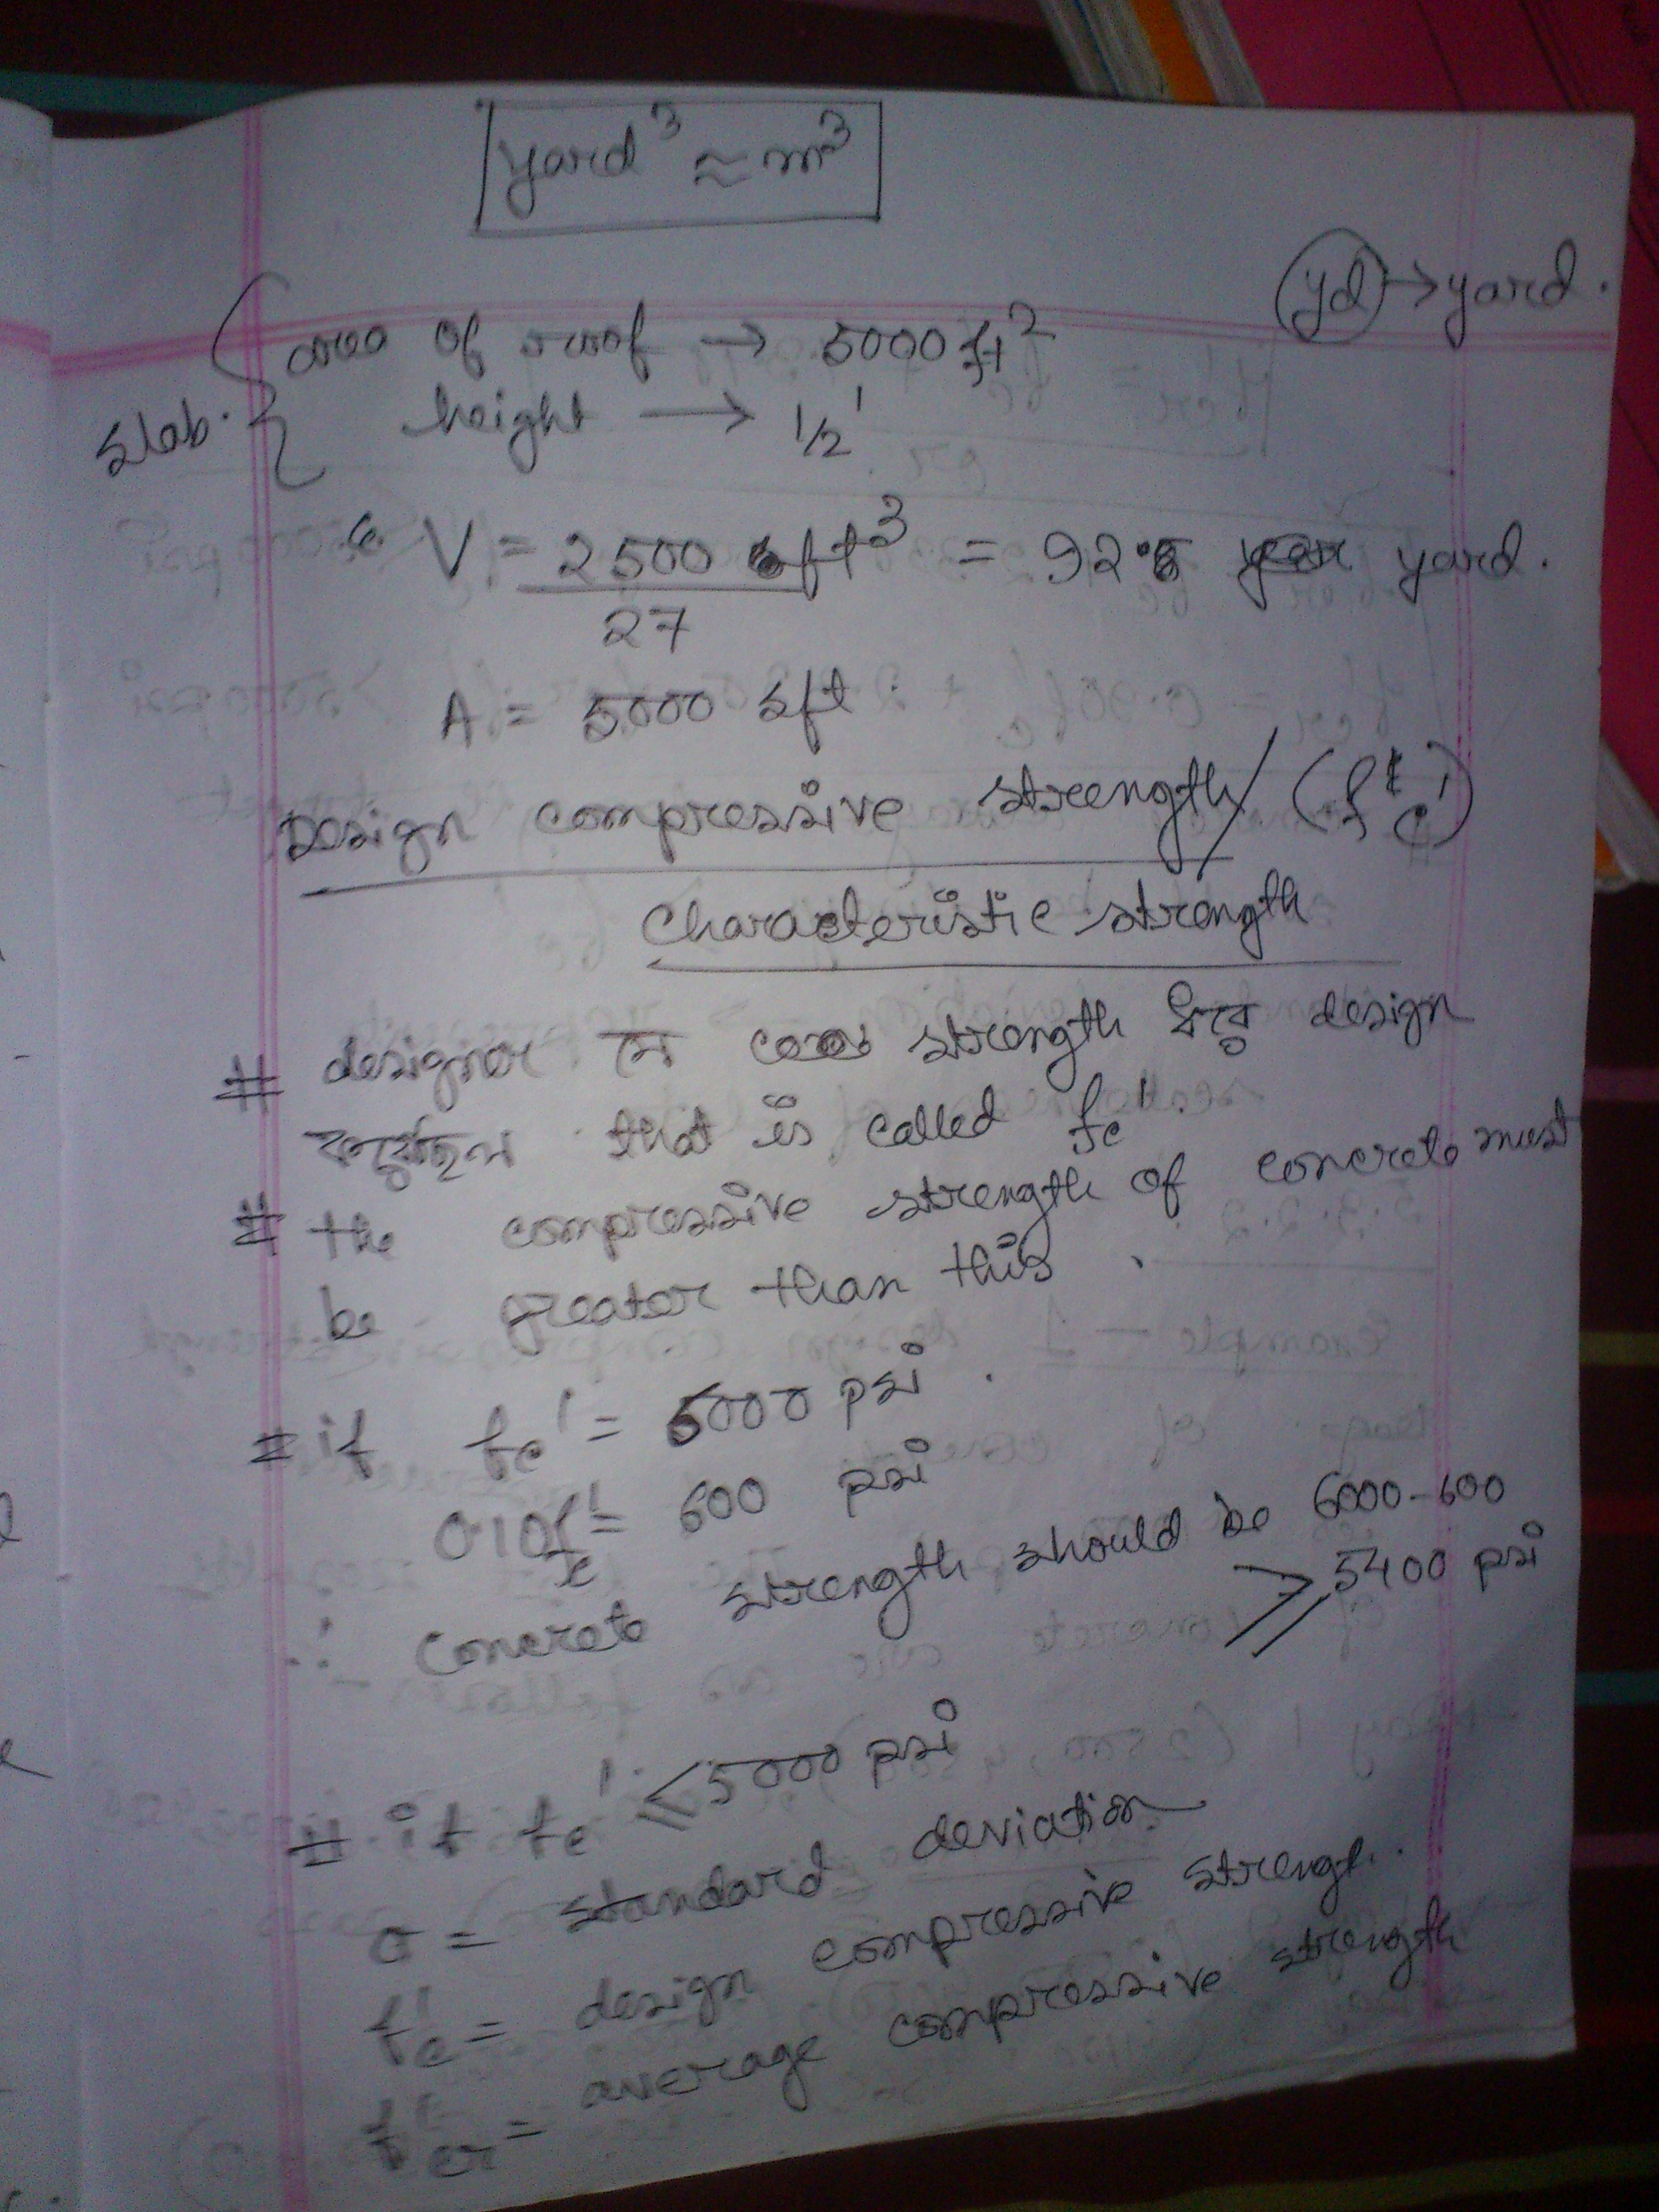 yard³ ≈ m³
yd → yard.
Slab. { area of roof → 5000 ft²
height → 1/2'
V = 2500 ft³ / 27 = 92.5 yard.
A = 5000 sft
Design compressive strength / (fc')
Characteristic strength
# designer যে strength ধরে design
করেছেন that is called fc'.
# the compressive strength of concrete must
be greater than this.
= if fc' = 5000 psi.
0.10fc' = 600 psi
∴ Concrete strength should be 6000-600
≥ 5400 psi
# if fc' ≤ 5000 psi
σ = standard deviation
fc' = design compressive strength.
fcr' = average compressive strength